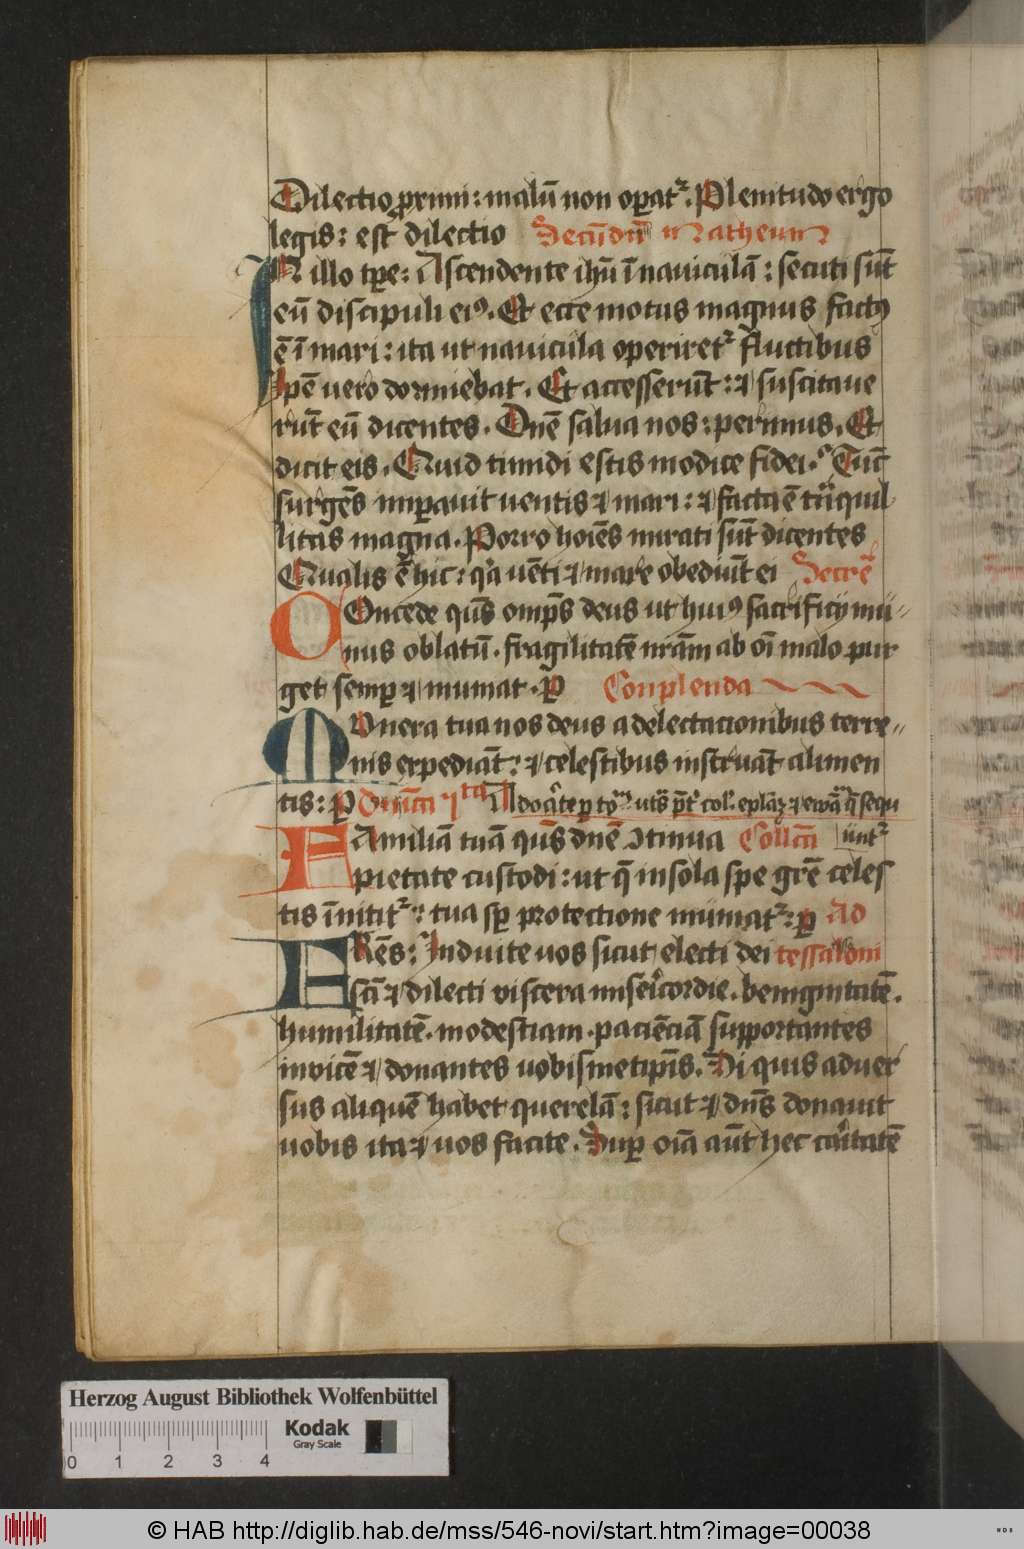 Dilectio proximi : malū non opat᷑. Plenitudo ergo
legis : est dilectio Secūdū Matheum
IN illo tꝑe : Ascendente ihū ī nauiculā : secuti sūt
eū discipuli eiꝰ. Et ecce motus magnus factꝰ
ē ī mari : ita ut nauicula operiret᷑ fluctibus
Ipē vero dormiebat. Et accesserūt : ⁊ suscitaue
rūt eū dicentes. Dnē salua nos : perimus. Et
dicit eis. Quid timidi estis modice fidei. Tūc
surgēs imꝑauit uentis ⁊ mari : ⁊ facta ē trāquil
litas magna. Porro hoīēs mirati sūt dicentes
Qualis ē hic : qa uēti ⁊ mare obediūt ei Secrē
COncede qs̄ omps̄ deus ut huiꝰ sacrificij mu
nus oblatū. fragilitatē nrām ab oī malo pur
get semꝑ ⁊ muniat. ꝑ Conplenda
MUnera tua nos deus a delectacionibus terre
nis expediāt : ⁊ celestibus instruāt alimen
tis : ꝑ Dn̄ica
FAmiliā tuā qs̄ dnē ꝯtinua Collcā ūnt᷑
pietate custodi : ut q̄ in sola spe grē celes
tis īnitit᷑ : tua sꝑ protectione muniat᷑ : ꝑ Ad
FRēs : Induite vos sicut electi dei tessaloni
scī ⁊ dilecti viscera misericordie. benignitatē.
humilitatē. modestiam. paciēciā supportantes
invicē ⁊ donantes uobismetipīs. Si quis aduer
sus aliquē habet querelā : sicut ⁊ dn̄s donauit
uobis ita ⁊ uos facite. Suꝑ oīa aūt hec caritatē
Herzog August Bibliothek Wolfenbüttel
Kodak
Gray Scale
0 1 2 3 4
© HAB http://diglib.hab.de/mss/546-novi/start.htm?image=00038